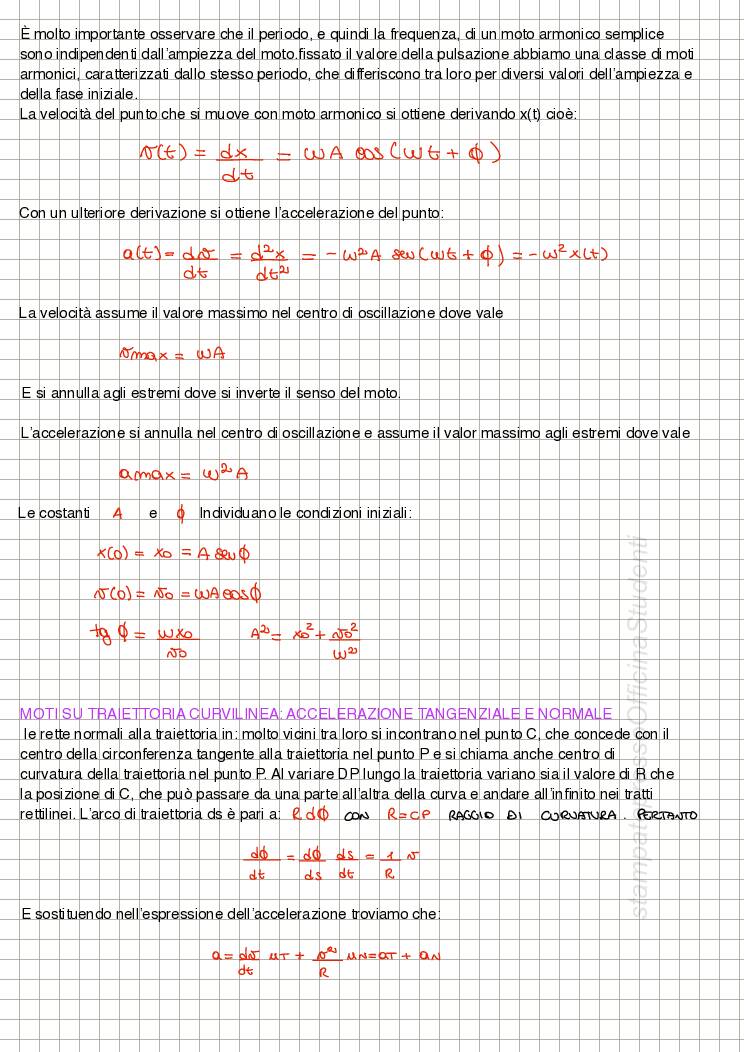 È molto importante osservare che il periodo, e quindi la frequenza, di un moto armonico semplice
sono indipendenti dall'ampiezza del moto.fissato il valore della pulsazione abbiamo una classe di moti
armonici, caratterizzati dallo stesso periodo, che differiscono tra loro per diversi valori dell'ampiezza e
della fase iniziale.
La velocità del punto che si muove con moto armonico si ottiene derivando x(t) cioè:
v(t) = dx/dt = ωA cos(ωt + ϕ)
Con un ulteriore derivazione si ottiene l'accelerazione del punto:
a(t) = dv/dt = d²x/dt² = -ω²A sen(ωt + ϕ) = -ω²x(t)
La velocità assume il valore massimo nel centro di oscillazione dove vale
vmax = ωA
E si annulla agli estremi dove si inverte il senso del moto.
L'accelerazione si annulla nel centro di oscillazione e assume il valor massimo agli estremi dove vale
amax = ω²A
Le costanti A e ϕ Individuano le condizioni iniziali:
x(0) = x0 = A senϕ
v(0) = v0 = ωA cosϕ
tg ϕ = ωx0/v0 A² = x0² + v0²/ω²
MOTI SU TRAIETTORIA CURVILINEA: ACCELERAZIONE TANGENZIALE E NORMALE
le rette normali alla traiettoria in: molto vicini tra loro si incontrano nel punto C, che concede con il
centro della circonferenza tangente alla traiettoria nel punto P e si chiama anche centro di
curvatura della traiettoria nel punto P. Al variare DP lungo la traiettoria variano sia il valore di R che
la posizione di C, che può passare da una parte all'altra della curva e andare all'infinito nei tratti
rettilinei. L'arco di traiettoria ds è pari a: R dϕ CON R=CP RAGGIO DI CURVATURA. PERTANTO
dϕ/dt = dϕ/ds ds/dt = 1/R v
E sostituendo nell'espressione dell'accelerazione troviamo che:
a = dv/dt uT + v²/R uN = aT + aN